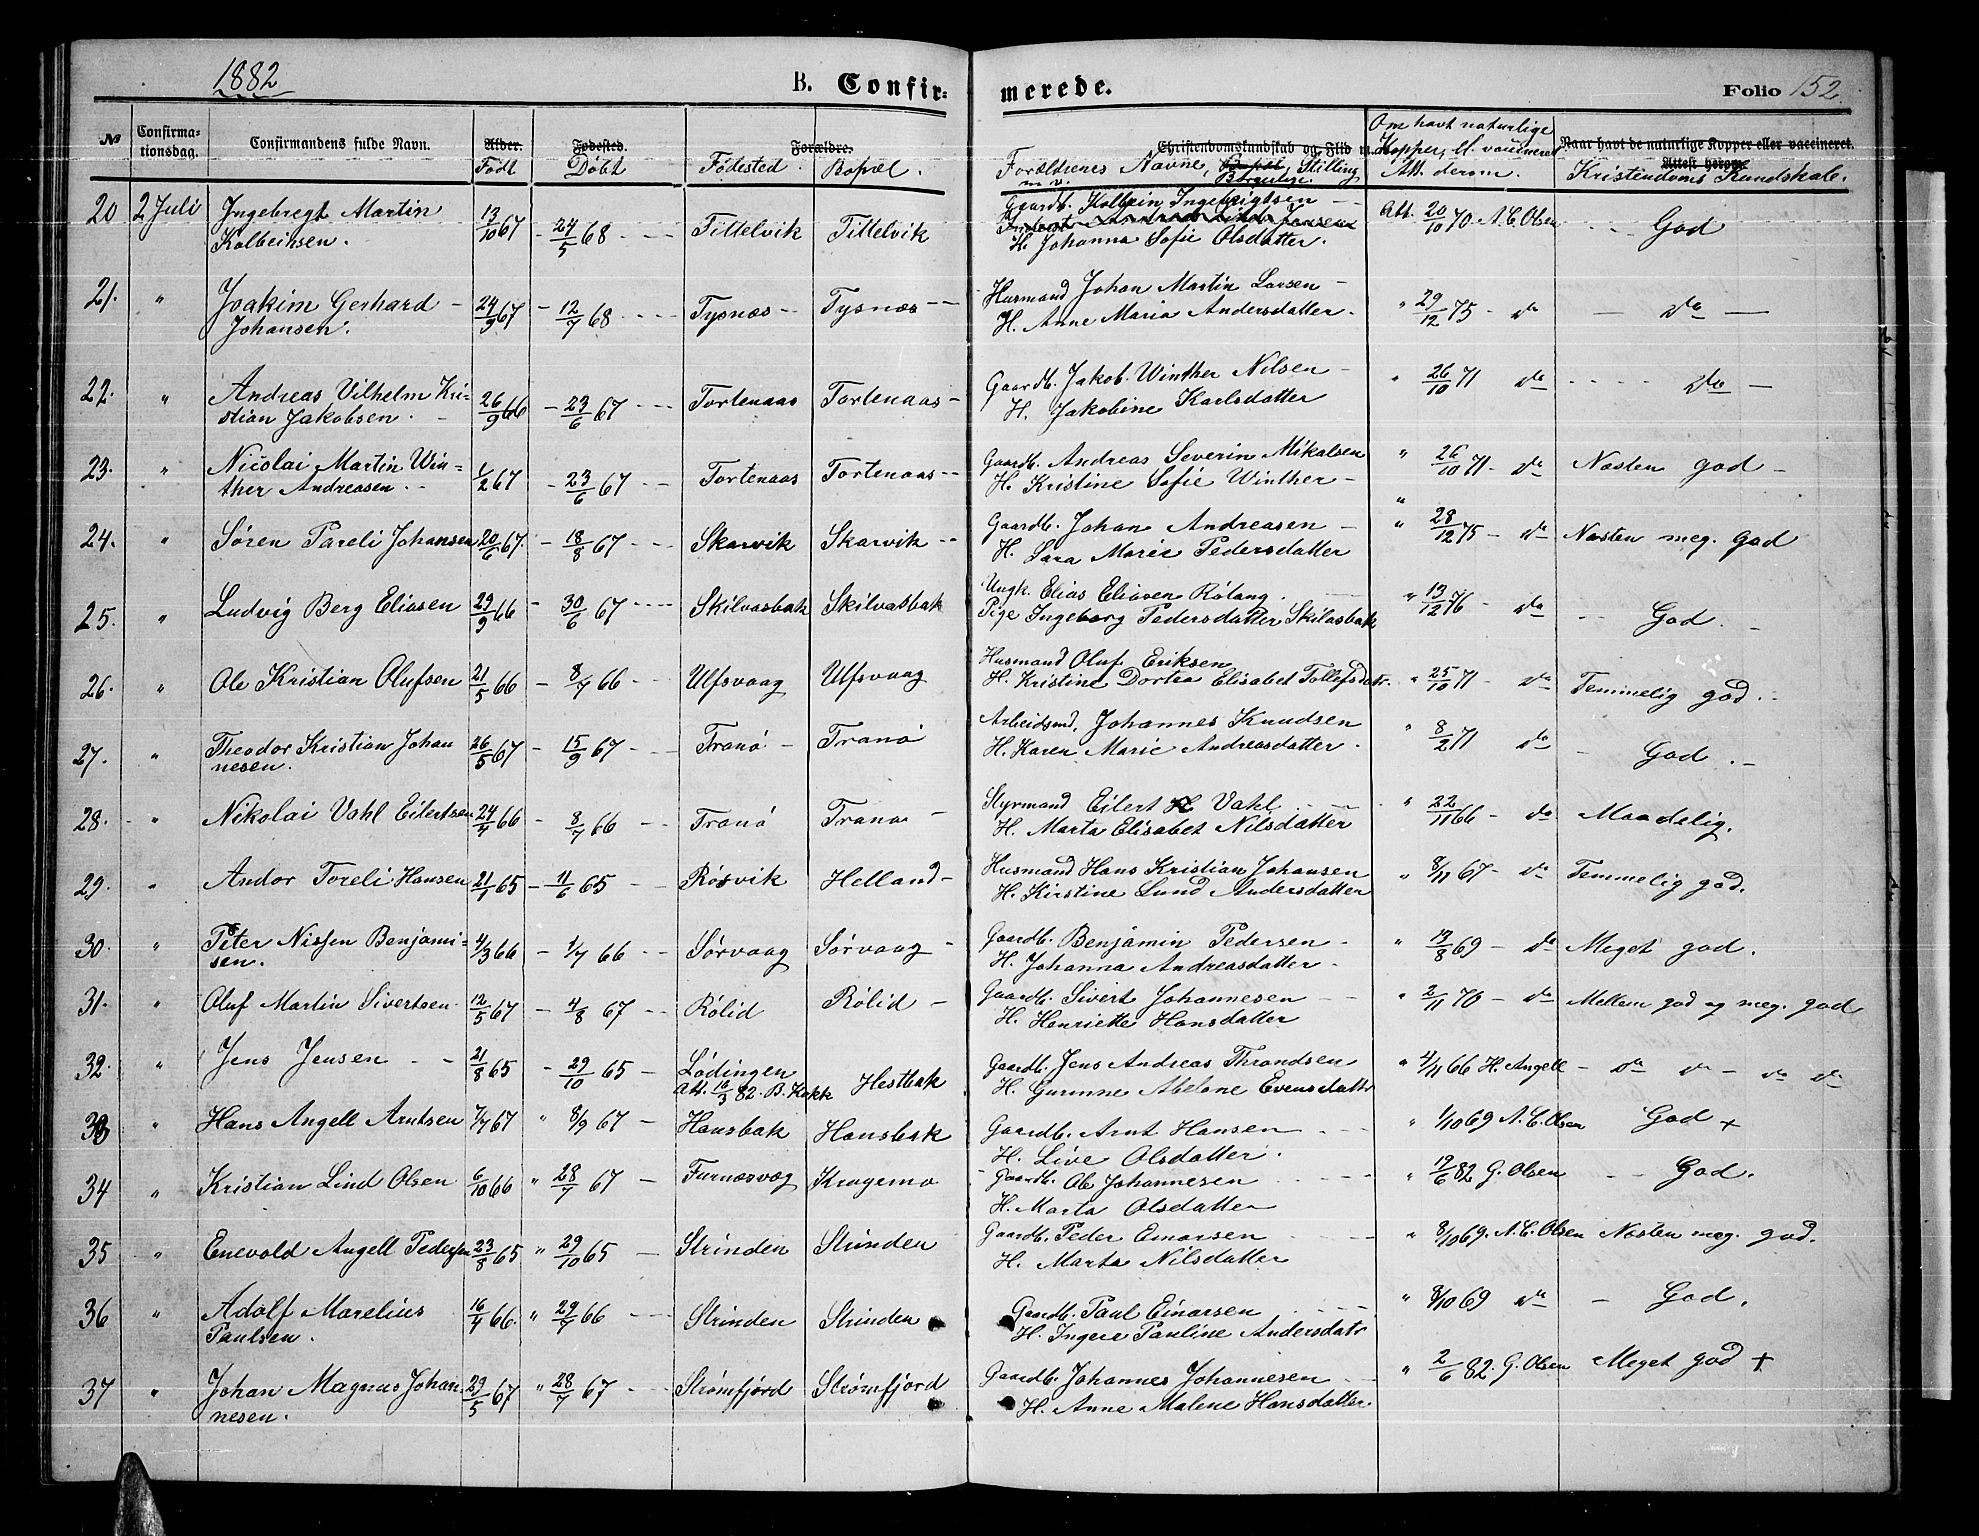 1882
B. Confir-
merede.
Folio 152.
№ Confirma-tionsdag. Confirmandens fulde Navn. Alder. Født Fødested. Døbt Forældre. Fødested. Bopæl. Christendomskundskab og Flid Forældrenes Navne, Bopæl, Stilling m. v. Borgerlige Om havt naturlige Kopper, el. vaccineret Att. derom. Naar havt de naturlige Kopper eller vaccineret. Attest herom Kristendoms Kundskab.
20 2 Juli Ingebregt Martin 13/10 67 - 24/5 68 Tittelvik Tittelvik Gaardb. Kolbein Ingebrigtsen Att. 20/10 70. A. C. Olsen God
Kolbeinsen. H. Johanna Sofie Olsdatter.
21. " Joakim Gerhard 24/9 67 - 12/7 68 Tysnæs Tysnæs Husmand Johan Martin Larsen " 29/12 75 - do - do -
Johansen. H. Anne Maria Andersdatter.
22. " Andreas Vilhelm Kri- 26/9 66 - 23/6 67 Tortenaas Tortenaas Gaardb. Jakob Winther Nilsen " 26/10 71 do do -
stian Jakobsen. H. Jakobine Karlsdatter
23. " Nicolai Martin Win- 1/2 67 - 23/6 67 Tortenaas Tortenaas Gaardb. Andreas Severin Mikalsen " 26/10 71 - do Næsten god -
ther Andreasen. H. Kristine Sofie Winther -
24. " Søren Pareli Johansen 20/6 67. - 18/8 67 Skarvik Skarvik Gaardb. Johan Andreasen " 28/12 75 - do Næsten meg. god
H. Sara Marie Pedersdatter
25. " Ludvig Berg Eliasen 29/9 66 - 30/6 67 Skilvasbak Skilvasbak Ungk. Elias Eliasen Rølang. " 13/12 76 - do God. -
Pige Ingeborg Pedersdatter Skilvasbak
26. " Ole Kristian Olufsen 21/5 66 - 8/7 66 Ulfsvaag Ulfsvaag Husmand Oluf Eriksen " 25/10 71 - do Temmelig god.
H. Kristine Dortea Elisabet Tollefsdatr.
27. " Theodor Kristian Johan 26/5 67 - 15/9 67 Tranø Tranø Arbeidsmd. Johannes Knudsen " 8/2 71 do - God. -
nesen. H. Karen Marie Andreasdatter.
28. " Nikolai Vahl Eilertsen 24/4 66 - 8/7 66 Tranø Tranø Styrmand Eilert Vahl " 22/11 66 - do Maadelig.
H. Marta Elisabet Nilsdatter
29. " Andor Toreli Hansen 21/4 65 - 11/6 65 Røsvik Helland Husmand Hans Kristian Johansen " 8/11 67 - do Temmelig god.
H. Kirstine Lund Andersdatter
30. " Peter Nissen Benjami- 4/3 66 - 1/7 66 Sørvaag Sørvaag Gaardb. Benjamin Pedersen " 13/8 69 - do Meget god.
sen. H. Johanna Andreasdatter
31. " Oluf Martin Sivertsen 12/5 67 - 4/8 67 Rølid Rølid Gaardb. Sivert Johannesen " 2/11 70 - do Mellem god og meg. god
H. Henriette Hansdatter
32. " Jens Jensen 21/8 65 - 29/10 65 Lødingen Hestbak Gaardb. Jens Andreas Throndsen " 4/11 66 H. Angell - do do - do do
Att. 16/3 82. B. Kokk H. Gurinne Abelone Evensdatr
33 " Hans Angell Arntsen 7/7 67 " 8/9 67 Hansbak Hansbak Gaardb. Arnt Hansen " 1/10 69 A. C. Olsen God +
H. Live Olsdatter.
34 " Kristian Lind Olsen 6/10 66 " 28/7 67 Furnæsvæg Kragemo Gaardb. Ole Johannesen " 19/6 82 G. Olsen God.
H. Marta Olsdatter
35 " Enevold Angell Pedersen 23/8 65 " 29/10 65 Strinden Strinden Gaardb. Peder Einarsen " 8/10 69. A. C. Olsen Næsten meg. god.
H. Marta Nilsdatter
36 " Adolf Marelius 16/4 66. " 29/7 66 Strinden Strinden Gaardb. Paul Einarsen " 8/10 69 do - God.
Paulsen. H. Inger Pauline Andersdatr
37 " Johan Magnus Johan 29/5 67 " 28/7 67 Strømfjord Strømfjord Gaardb. Johannes Johannesen " 2/6 82. G. Olsen Meget god +
nesen. H. Anne Malene Hansdatter.